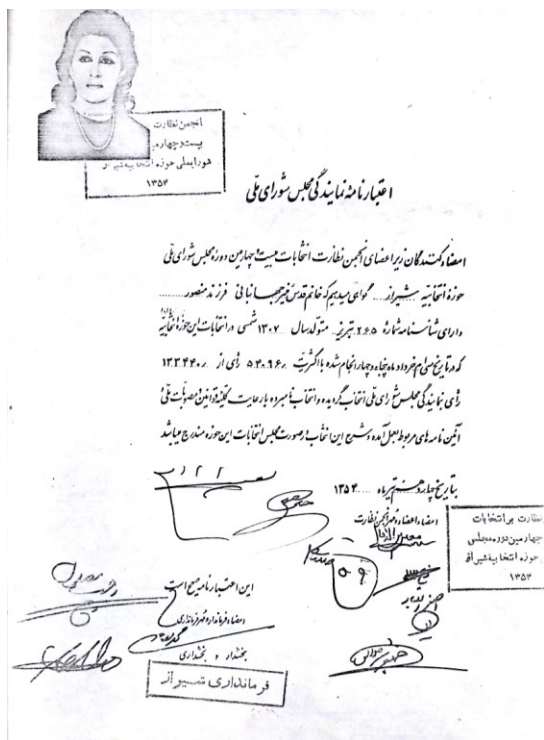 انجمن نظارت
بیست و چهارمین
شورایملی حوزه انتخابیه شیراز
۱۳۵۴
اعتبارنامه نمایندگی مجلس شورای ملی
امضاءکنندگان زیر اعضای انجمن نظارت انتخابات بیست و چهارمین دوره مجلس شورای ملی
حوزه انتخابیه شیراز گواهی میدهیم که خانم قدس منیر جهانبانی فرزند منصور
دارای شناسنامه شماره ۲۶۵ تبریز متولد سال ۱۳۰۷ شمسی در انتخابات این حوزه انتخابیه
که در تاریخ سی ام خرداد ماه پنجاه و چهار انجام شده با اکثریت ۵۴۰۹۶ رأی از ۱۳۳۴۴۰
رأی نمایندگی مجلس شورای ملی انتخاب گردیده و انتخاب نامبرده با رعایت کلیه قوانین و مصوبات ملی و
آئین نامه های مربوط بعمل آمده و شرح این انتخاب در صورت مجلس انتخابات این حوزه مندرج میباشد
بتاریخ چهاردهم تیرماه ۱۳۵۴
امضاء اعضاء و مهر انجمن نظارت
نظارت بر انتخابات
چهارمین دوره مجلس
حوزه انتخابیه شیراز
۱۳۵۴
این اعتبارنامه صحیح است
امضاء فرماندار و مهر فرمانداری
بخشدار و بخشداری
فرمانداری شیراز